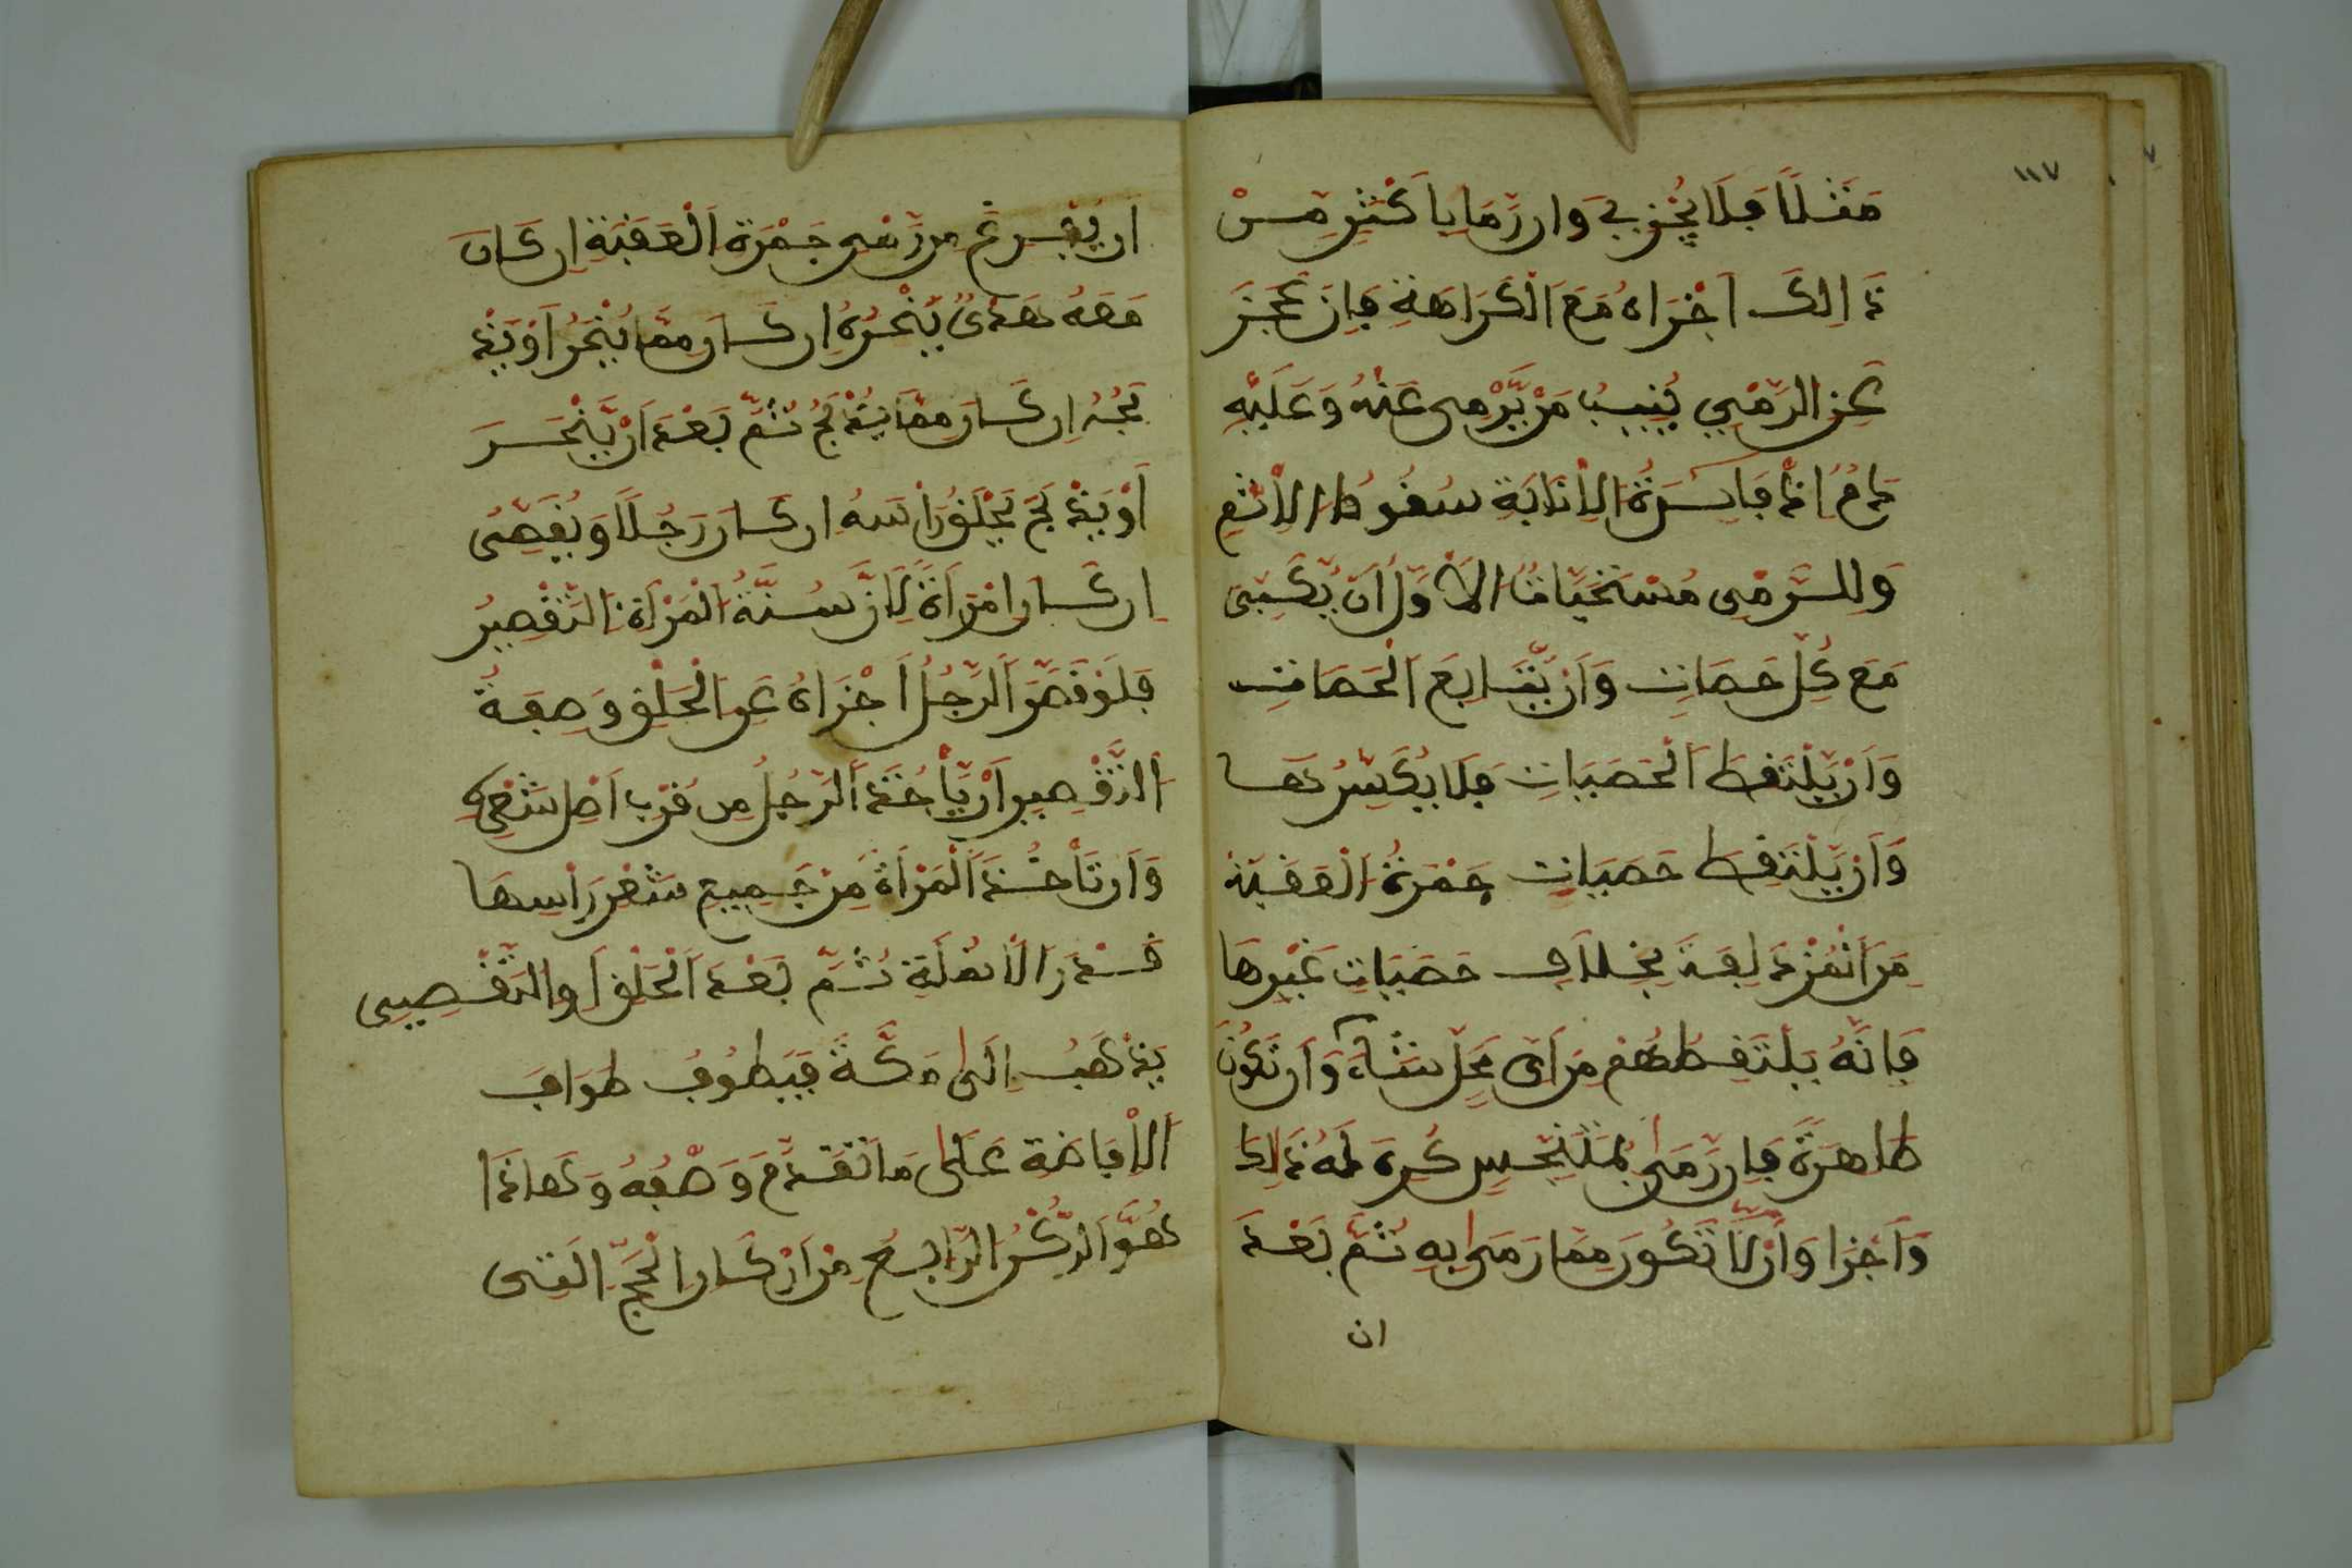 ١١٧
مَثَلًا فَلَا يُجْزِي وَان رَّمَا بِأَكْثَرِ مِنْ
ذَالِكَ اَجْزَاهُ مَعَ الْكَرَاهَةِ فَإِن عَجَزَ
عَنِ الرَّمْيِ يُنِيبُ مَنْ يَّرْمِي عَنْهُ وَعَلَيْهِ
دَمٌ اِذْ فَايِدَةُ الْاِنَابَةِ سُقُوطُ الْاِثْمِ
وَلِلرَّمْيِ مُسْتَحَبَّاتٌ الْاَوَّلُ اَن يُّكَبِّرَ
مَعَ كُلِّ حَصَاتٍ وَاَنْ يُّتَابِعَ الْحَصَاتِ
وَاَنْ يَّلْتَقِطَ الْحَصَيَاتِ فَلَا يُكَسِّرُهَا
وَاَنْ يَّلْتَقِطَ حَصَيَاتِ جَمْرَةِ الْعَقَبَة
مِنَ الْمُزْدَلِفَةَ بِخِلَافِ حَصَيَاتِ غَيْرِهَا
فَاِنَّهُ يَلْتَقِطُهُمْ مِنَ اَيِّ مَحَلٍّ شَآءَ وَاَن تَكُونَ
طَاهِرَةً فَاِن رَّمَى بِمُتَنَجِّسٍ كُرِهَ لَهُ ذَالِكَ
وَاَجْزَا وَاَنْ لَّا تَكُونَ مِمَّا رَمَى بِهِ ثُمَّ بَعْدَ
ان
اَن يَّفْرِغَ مِن رَّمْيِ جَمْرَةِ الْعَقَبَةِ اِن كَانَ
مَعَهُ هَدْيٌ يَّنْحَرُهُ اِن كَانَ مِمَّا يُنْحَرُ اَوْ يَذْ
بَحُهُ اِن كَانَ مِمَّا يُذْبَحُ ثُمَّ بَعْدَ اَنْ يَّنْحَرَ
اَوْ يَذْبَحَ يَحْلِقُ رَأْسَهُ اِن كَانَ رَجُلًا وَيُقَصِّرُ
اِن كَانَ اِمْرَاَةً لِاَنَّ سُنَّةُ الْمَرْاَةِ التَّقْصِيرُ
فَلَوْ قَصَّرَ الرَّجُلُ اَجْزَاهُ عَنِ الْحَلْقِ وَصِفَةُ
التَّقْصِيرِ اَنْ يَّأْخُذَ الرَّجُلُ مِن قُرْبِ اَصْلِ شَعْرِهِ
وَاَن تَأْخُذَ الْمَرْاَةُ مِنْ جَمِيعِ شَعْرِ رَأْسِهَا
قَدْرَ الْاَنمُلَةِ ثُمَّ بَعْدَ الْحَلْقِ اَوِ التَّقْصِيرِ
يَذْهَبُ اِلَى مَكَّةَ فَيَطُوفُ طَوَافَ
الْاِفَاضَةِ عَلَى مَا تَقَدَّمَ وَصْفُهُ وَهَاذَا
هُوَ الرُّكْنُ الرَّابِعُ مِنْ اَرْكَانِ الْحَجِّ الَّتِي